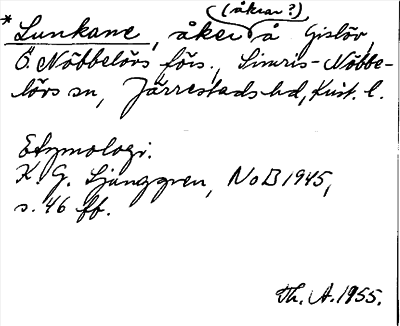 (åkrar?)
* Lunkane, åker å Gislöv,
Ö. Nöbbelövs förs., Simris-Nöbbe-
lövs sn, Järrestads hd, Krist. l.
Etymologi.
K. G. Ljunggren, NoB 1945,
s. 46 ff.
Th. A. 1955.